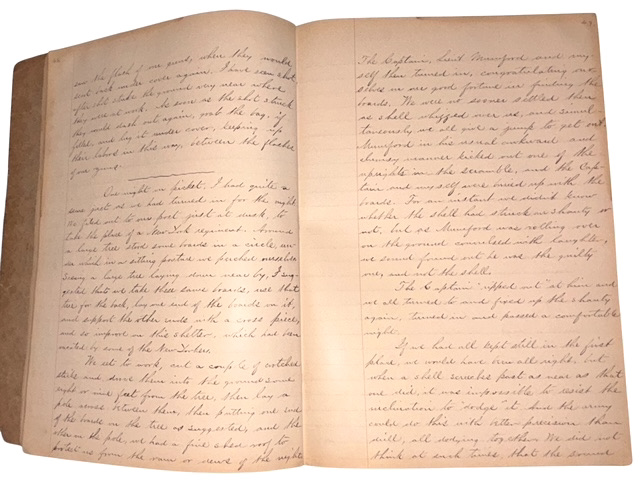 see the flash of our guns, when they would
dart back under cover again. I have seen shot
after shot strike the ground very near where
they were at work. As soon as the shot struck
they would dash out again, grab the bag, if
filled, and lay it under cover, keeping up
their labors in this way, between the flashes
of our guns.
One night on picket, I had quite a
scare just as we had turned in for the night.
We filed out to our post just at dusk, to
take the place of a New York regiment. Around
a large tree stood some boards in a circle, un-
der which in a sitting posture we perched ourselves.
Seeing a large tree laying down near by, I sug-
gested that we take these same boards, use that
tree for the back, lay one end of the boards on it,
and support the other ends with a cross piece,
and so improve on this shelter, which had been
erected by some of the New Yorkers.
We set to work, cut a couple of crotched
sticks and drove them into the ground some
eight or nine feet from the tree, then lay a
pole across between them, then putting one end
of the boards on the tree as suggested, and the
other on the pole, we had a fine shed roof to
protect us from the rain or dews of the night.
67
The Captain, Lieut Mumford and my
self then turned in, congratulating our
selves on our good fortune in finding the
boards. We were no sooner settled than
a shell whizzed over us, and simul
taneously we all give a jump to get out.
Mumford in his usual awkward and
clumsy manner kicked out one of the
uprights in the scramble, and the Cap-
tain and myself were buried up with the
boards. For an instant we didn't know
whether the shell had struck our shanty or
not, but as Mumford was rolling over
on the ground convulsed with laughter,
we soon found out he was the guilty
one, and not the shell.
The Captain "ripped out" at him and
we all turned to and fixed up the shanty
again, turned in and passed a comfortable
night.
If we had all kept still in the first
place, we would have been all right, but
when a shell screeches past as near as that
one did, it was impossible to resist the
inclination to dodge it and the army
could do this with better precision than
drill, all dodging together. We did not
think at such times that the sound